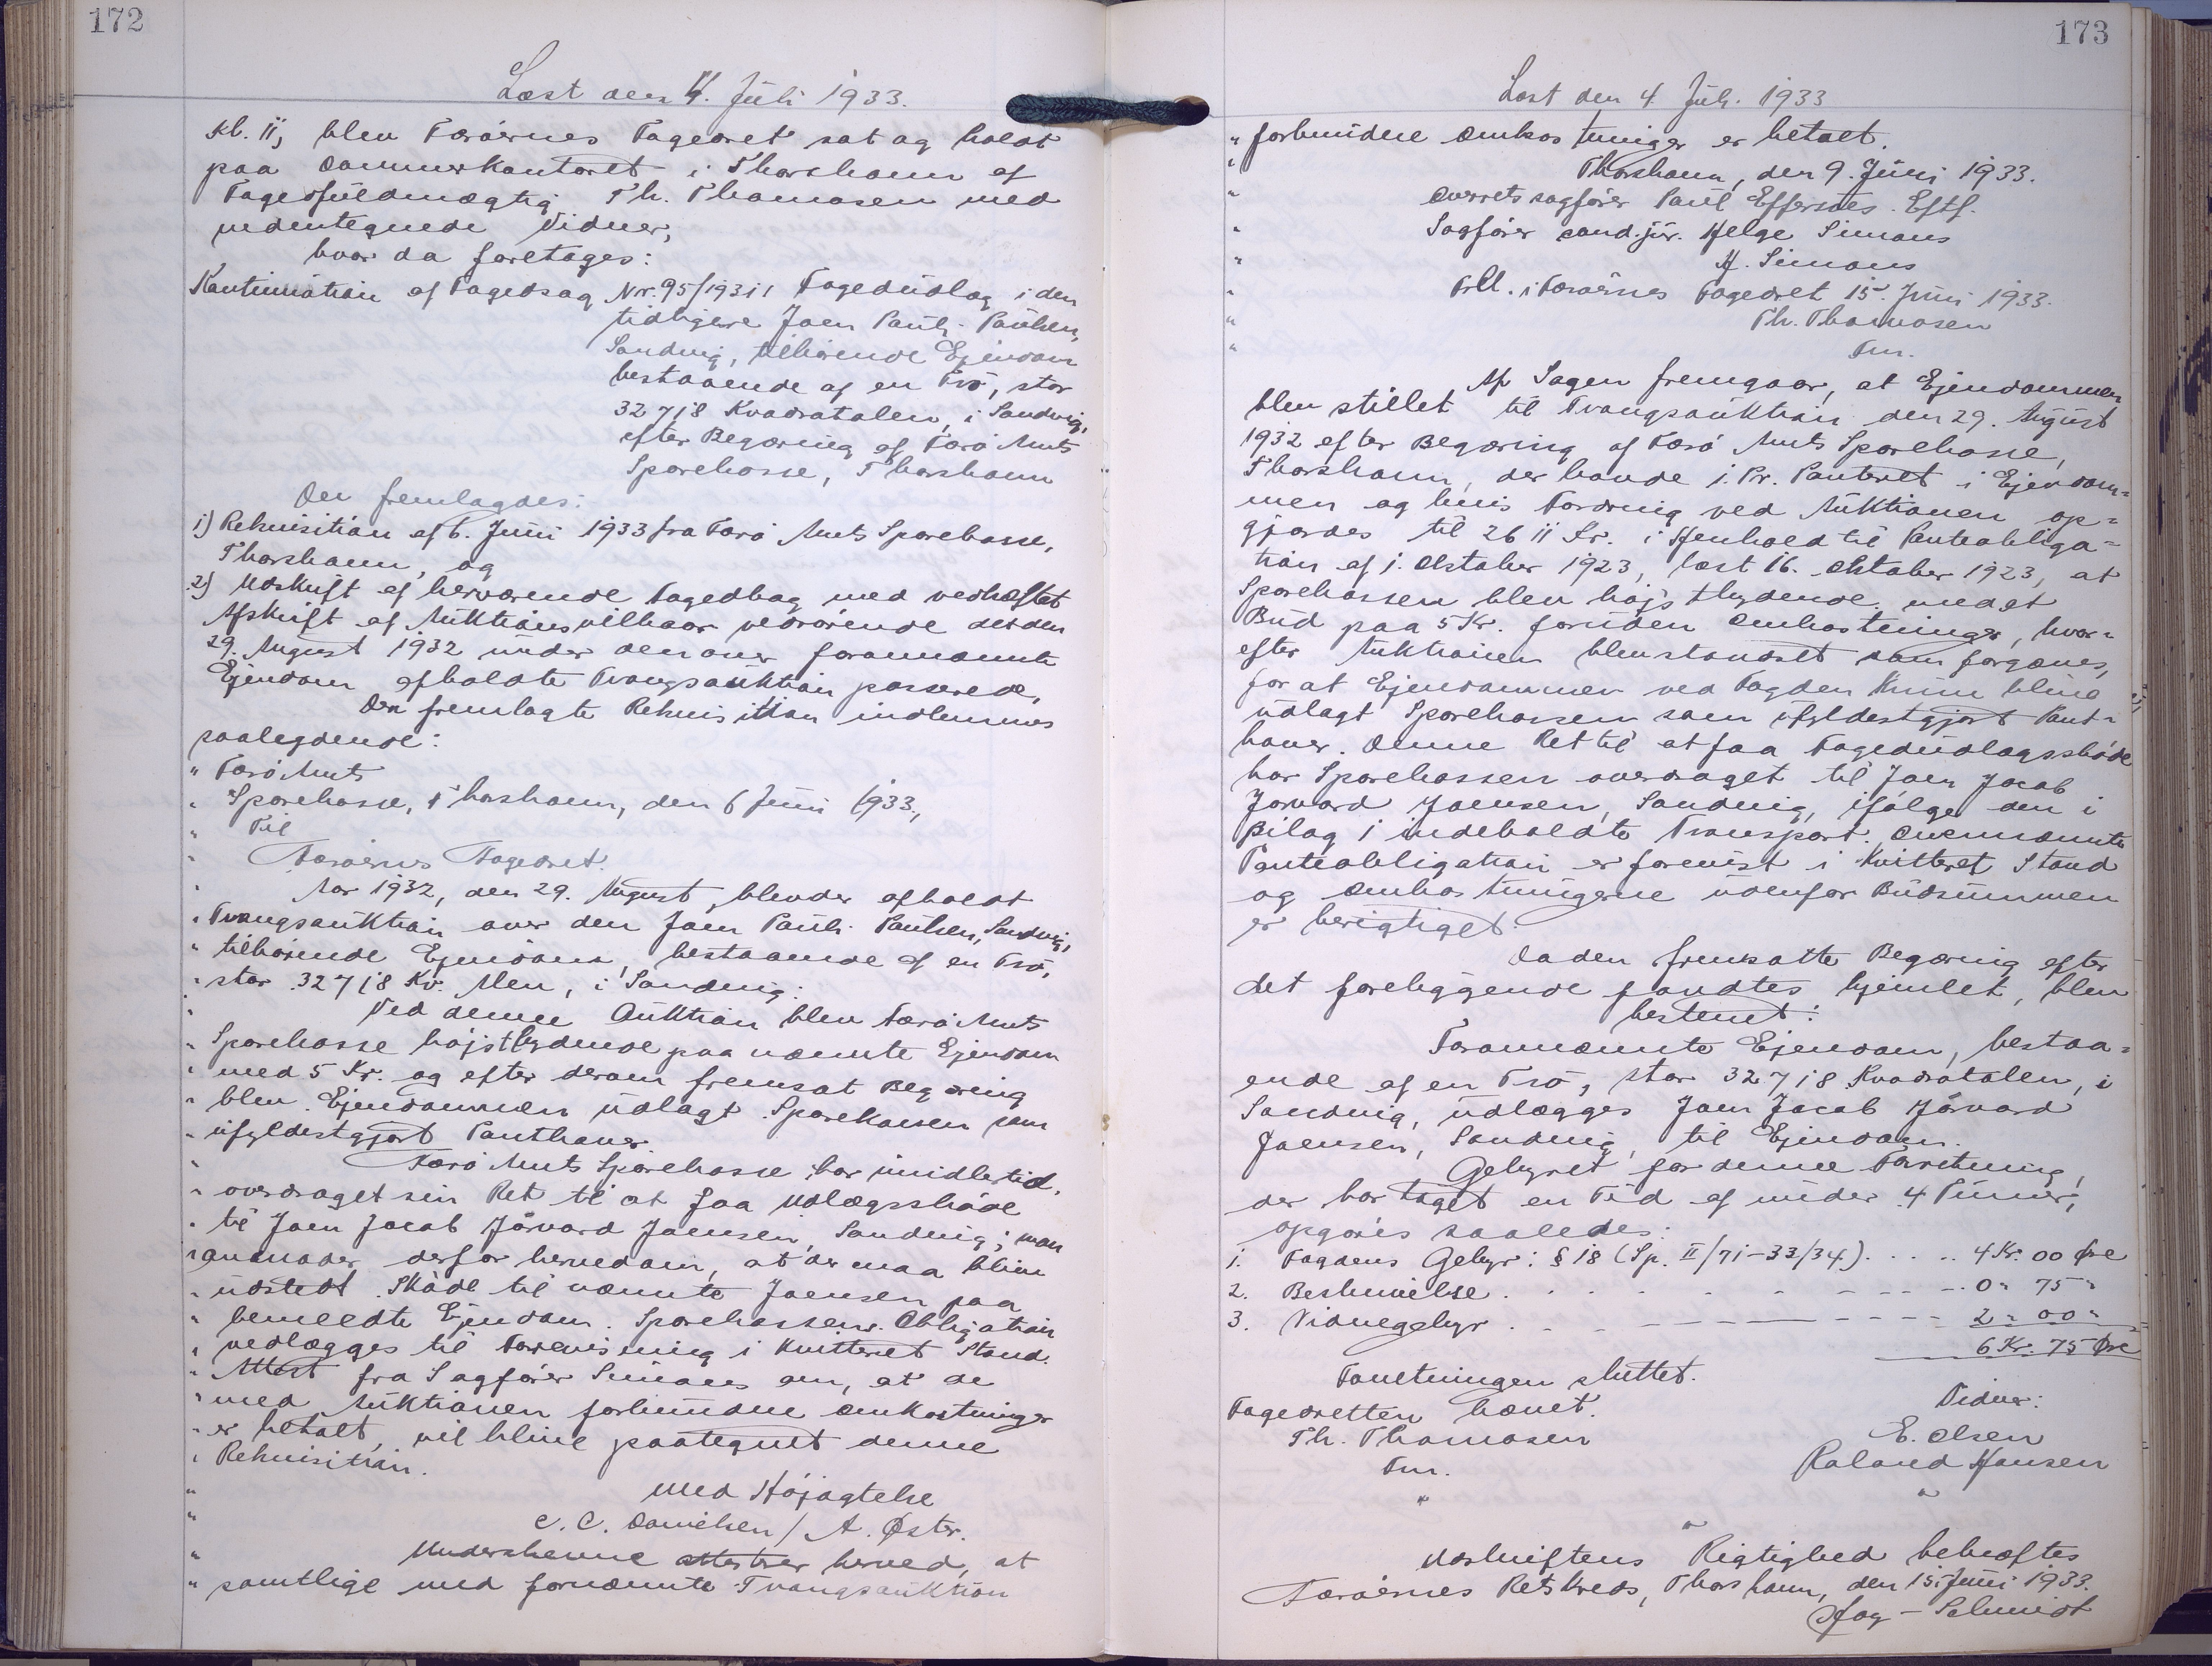 172
Læst den 4. Juli 1933.
Kl. 11, blev Færøernes Fogedret sat og holdt
paa Dommerkontoret i Thorshavn af
Fogedfuldmægtig Th. Thomasen med
undertegnede Vidner,
hvor da foretages:
Kontinuation af Fogedsag Nr. 95/1931: Fogedudlæg i den
tidligere Joen Pauli Paulsen,
Sandvig, tilhørende Ejendom
bestaaende af en Trö, stor
32718 Kvadratalen, i Sandvig,
efter Begæring af Færø Amts
Sparekasse, Thorshavn
Der fremlagdes:
1) Rekvisition af 6. Juni 1933 fra Færø Amts Sparekasse,
Thorshavn, og
2) Udskrift af herværende Fogedbog med vedhæftet
Afskrift af Auktionsvilkaar vedrørende det den
29. August 1932 under den over forannævnte
Ejendom afholdte Tvangsauktion passerede.
Den fremlagte Rekvisition indlemmes
saalydende:
" Færø Amts
" Sparekasse, Thorshavn, den 6 Juni 1933,
" Til
" Færøernes Fogedret.
" Aar 1932, den 29. August, blev der afholdt
" Tvangsauktion over den Joen Pauli Paulsen, Sandvig,
" tilhørende Ejendom, bestaaende af en Trö,
" stor 32718 Kv. Alen, i Sandvig.
" Ved denne Auktion blev Færø Amts
" Sparekasse højstbydende paa nævnte Ejendom
" med 5 Kr. og efter derom fremsat Begæring
" blev Ejendommen udlagt Sparekassen som
" ufyldestgjort Panthaver.
" Færø Amts Sparekasse har imidlertid
" overdraget sin Ret til at faa Udlægsskøde
" til Joen Jacob Jórvard Joensen, Sandvig; man
" anmoder derfor herved om, at der maa blive
" udstedt Skøde til nævnte Joensen paa
" bemeldte Ejendom. Sparekassens Obligation
" vedlægges til Forevisning i kvitteret Stand.
" Attest fra Sagfører Simons om, at de
" med Auktionen forbundne Omkostninger
" er betalt, vil blive paategnet denne
" Rekvisition.
" Med Højagtelse
" C. C. Danielsen / A. Øster.
" Underskrevne attesterer herved, at
" samtlige med fornævnte Tvangsauktion
173
Læst den 4. Juli. 1933
" forbundne Omkostninger er betalt.
" Thorshavn, den 9. Juni 1933.
" Overretssagfører Paul Effersøes Eftf.
" Sagfører cand. jur. Helge Simons
" H. Simons
" Frll. i Færøernes Fogedret 15. Juni 1933.
" Th. Thomasen
" Fm.
Af Sagen fremgaar, at Ejendommen
blev stillet til Tvangsauktion den 29. August
1932 efter Begæring af Færø Amts Sparekasse,
Thorshavn, der havde 1. Pr. Panteret i Ejendom=
men og hvis Fordring ved Auktionen op=
gjordes til 2611 Kr. i Henhold til Panteobliga=
tion af 1. Oktober 1923, læst 16. Oktober 1923, at
Sparekassen blev højstbydende med et
Bud paa 5 Kr. foruden Omkostninger, hvor=
efter Auktionen blev standset som forgæves,
for at Ejendommen ved Fogden kunne blive
udlagt Sparekassen som ufyldestgjort Pant=
haver. Denne Ret til at faa Fogedudlægsskøde
har Sparekassen overdraget til Joen Jacob
Jorvard Joensen, Sandvig, ifølge den i
Bilag 1 indeholdte Transport. Ovennævnte
Panteobligation er forevist i kvitteret Stand
og Omkostningerne udenfor Budsummen
er berigtiget.
Da den fremsatte Begæring efter
det foreliggende fandtes hjemlet, blev
bestemt:
Forannævnte Ejendom, bestaa=
ende af en Trö, stor 32718 Kvadratalen, i
Sandvig, udlægges Joen Jacob Jórvard
Joensen, Sandvig, til Ejendom.
Gebyret for denne Forretning,
der har taget en Tid af under 4 Timer,
opgøres saaledes:
1. Fogdens Gebyr: § 18 (Sp. II/71-33/34) . . . . 4 Kr. 00 Øre
2. Beskrivelse . . . . . . . . 0 " 75 "
3. Vidnegebyr . . . . . . . . 2 " 00 "
6 Kr. 75 Øre
Forretningen sluttet.
Fogedretten hævet.
Th. Thomasen
Fm.
"
Vidner:
E. Olsen
Roland Hansen
"
"
Udskriftens Rigtighed bekræftes
Færøernes Retskreds, Thorshavn, den 15. Juni 1933.
Hag-Schmidt